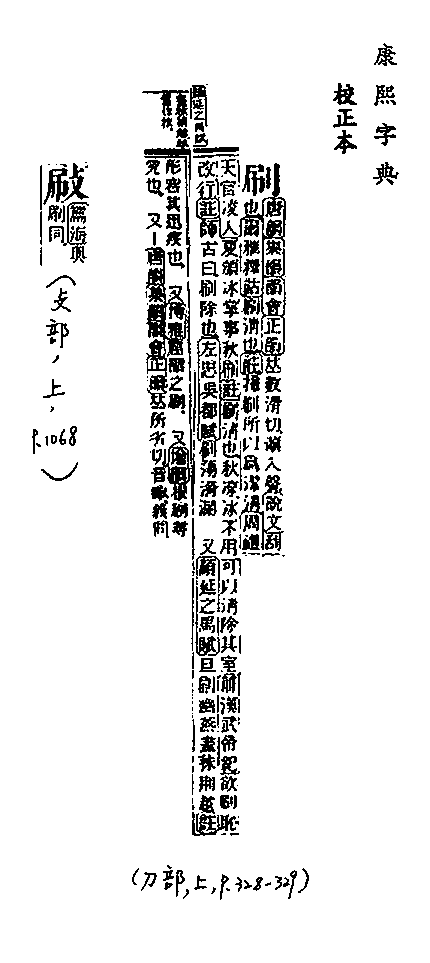 康熙字典
校正本
刷
唐韻集韻韻會正韻𠀤數滑切 入聲說文刮
也爾雅釋詁刷清也註掃刷所以爲潔清周禮
天官凌人夏頒冰掌事秋刷註刷清也秋涼冰不用可以清除其室前漢武帝紀欲刷恥
改行註師古曰刷除也左思吳都賦刷盪漪瀾 又顏延之馬賦旦刷幽燕晝秣荆越註
形容其迅疾也 又博雅 之刷 又增韻根刷尋
究也 又 唐韻集韻韻會正韻𠀤所劣切音 義同
刷同
(攴部,上,P.1068)
(刀部,上,P.328-329)